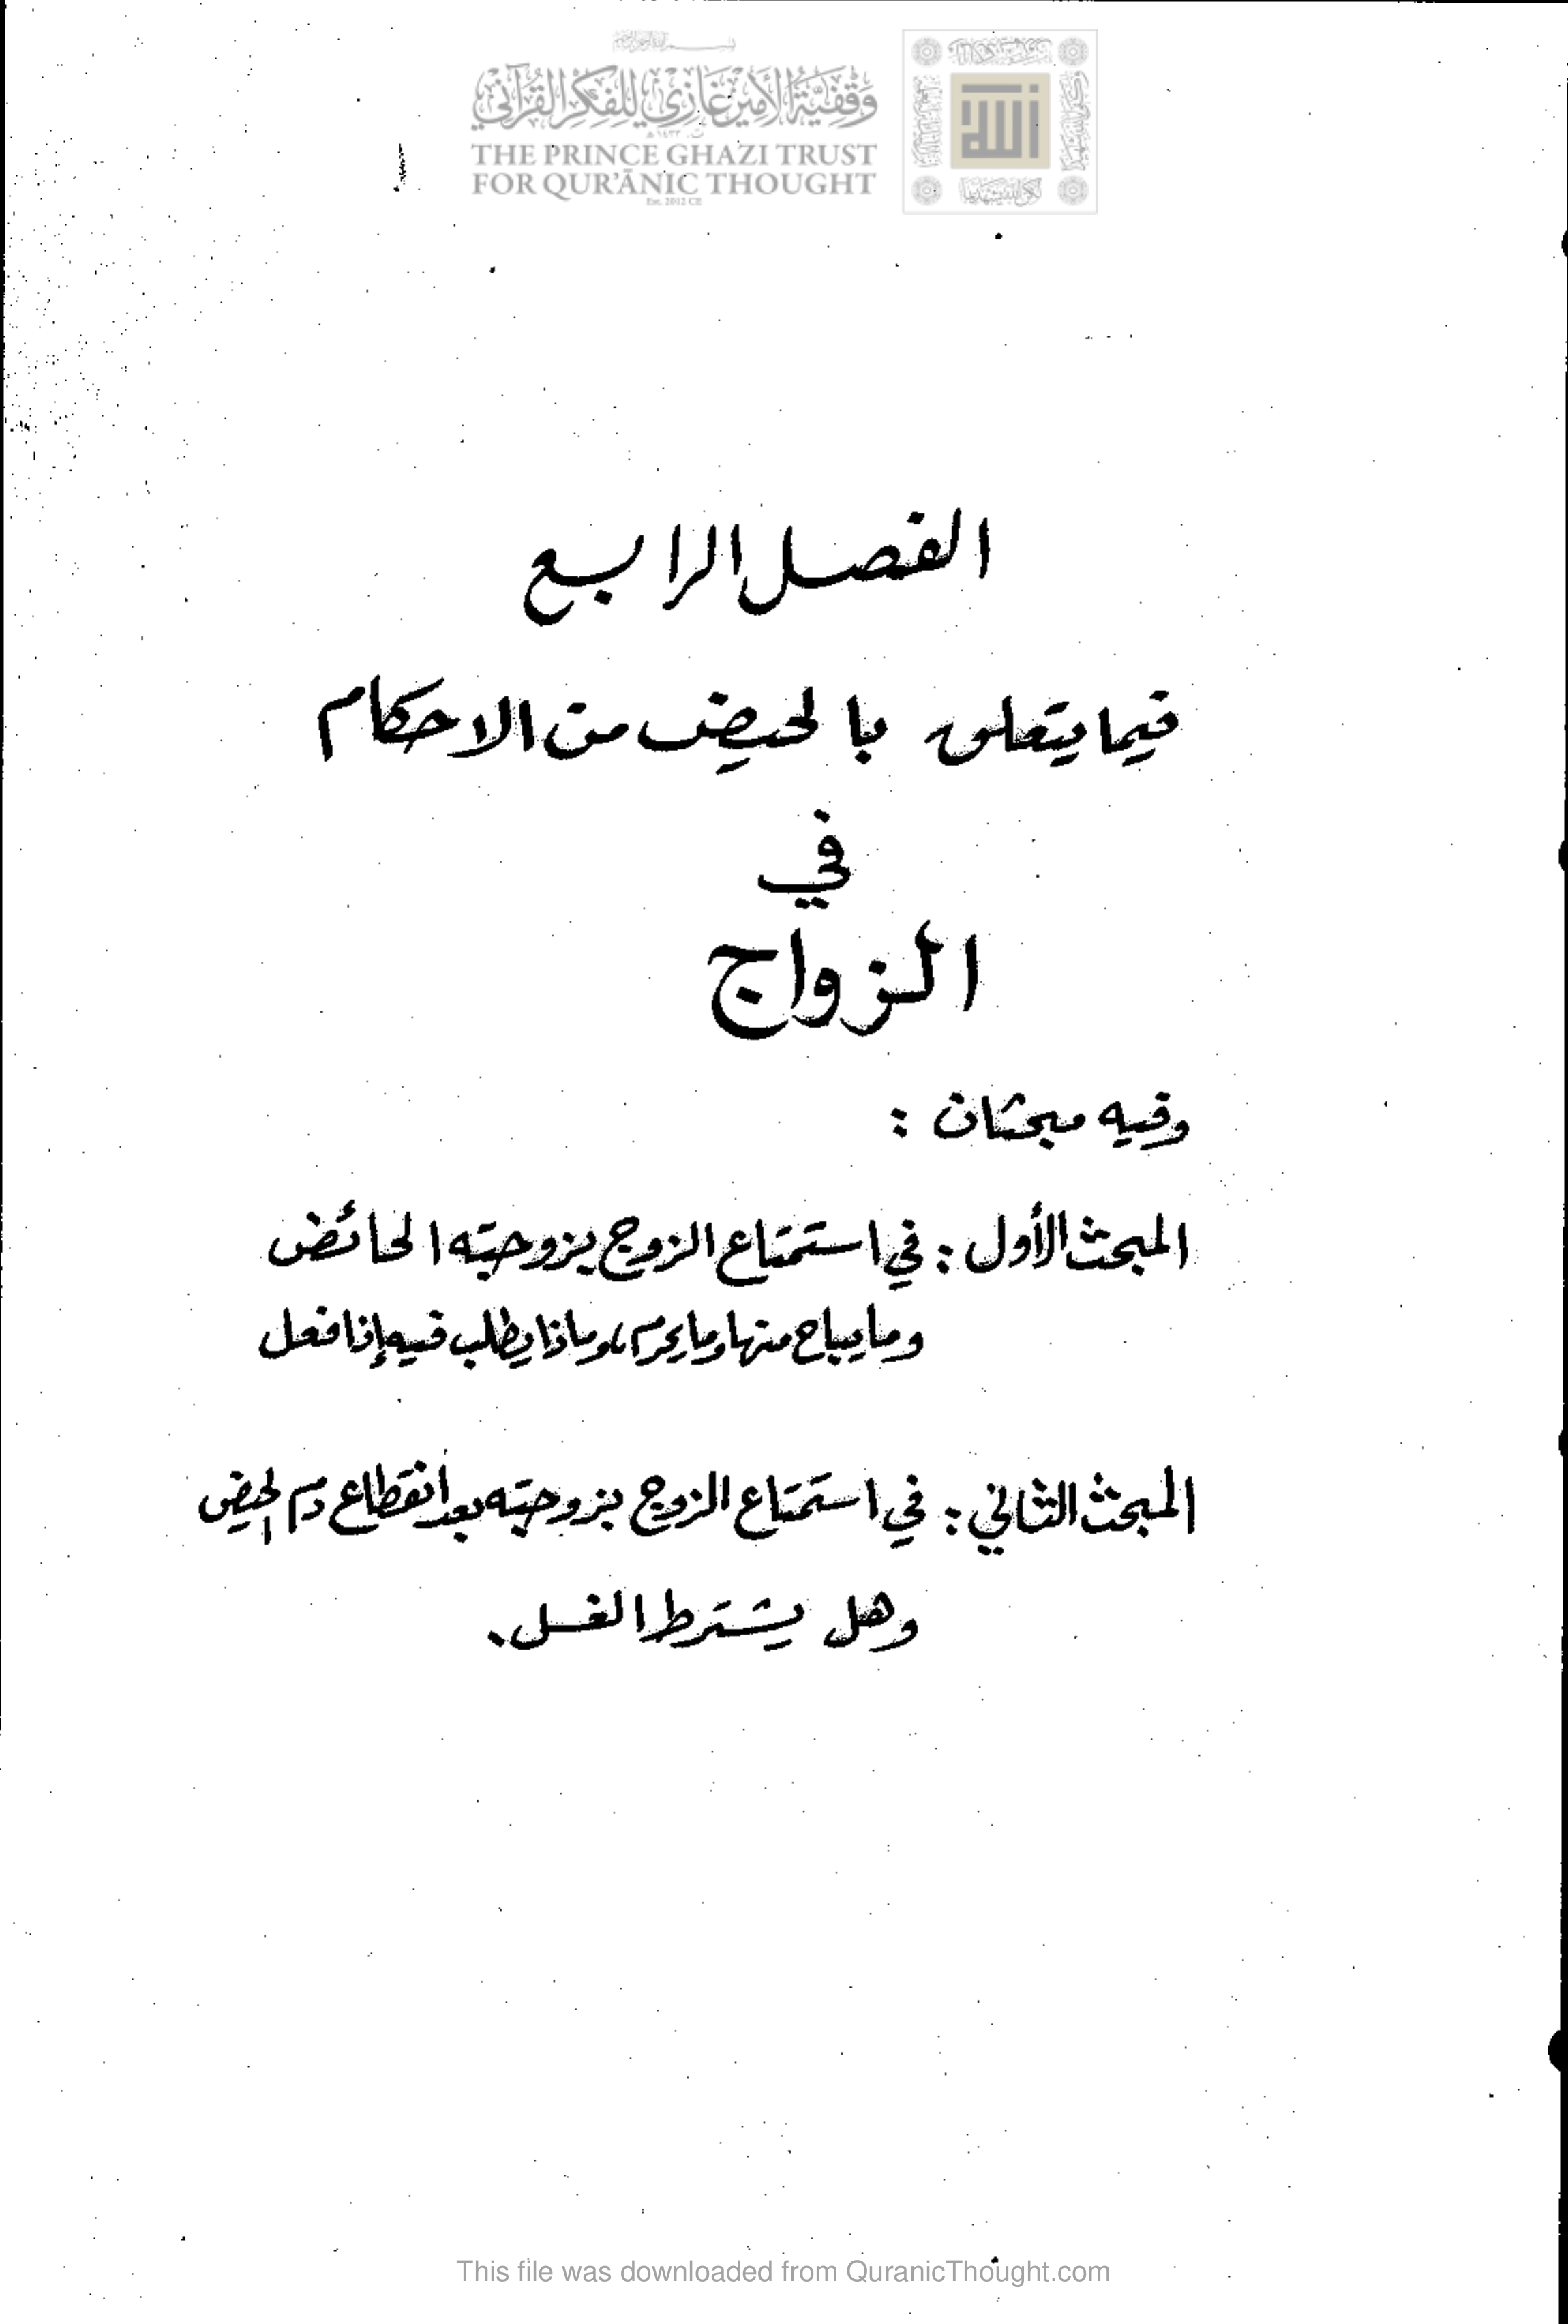 وقفية الأمير غازي للفكر القرآني
THE PRINCE GHAZI TRUST
FOR QUR'ĀNIC THOUGHT
Est. 2012 CE
الفصل الرابع
فيما يتعلق بالحيض من الاحكام
في
الزواج
وفيه مبحثان :
المبحث الأول : في استمتاع الزوج بزوجته الحائض
وما يباح منها وما يحرم، وماذا يطلب فيه إذا فعل
المبحث الثاني : في استمتاع الزوج بزوجته بعد انقطاع دم الحيض
وهل يشترط الغسل.
This file was downloaded from QuranicThought.com